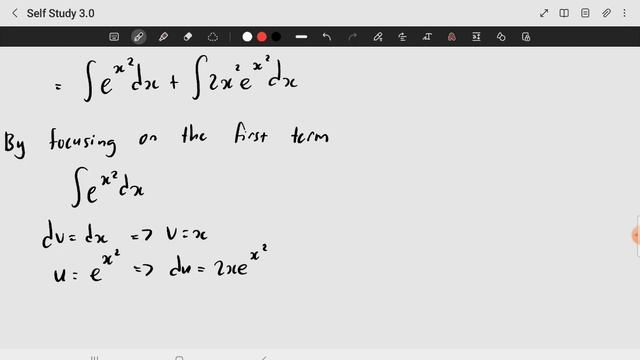 Self Study 3.0
= ∫e^{x²}dx + ∫2x²e^{x²}dx
By focusing on the first term
∫e^{x²}dx
dv = dx => v = x
u = e^{x²} => du = 2xe^{x²}